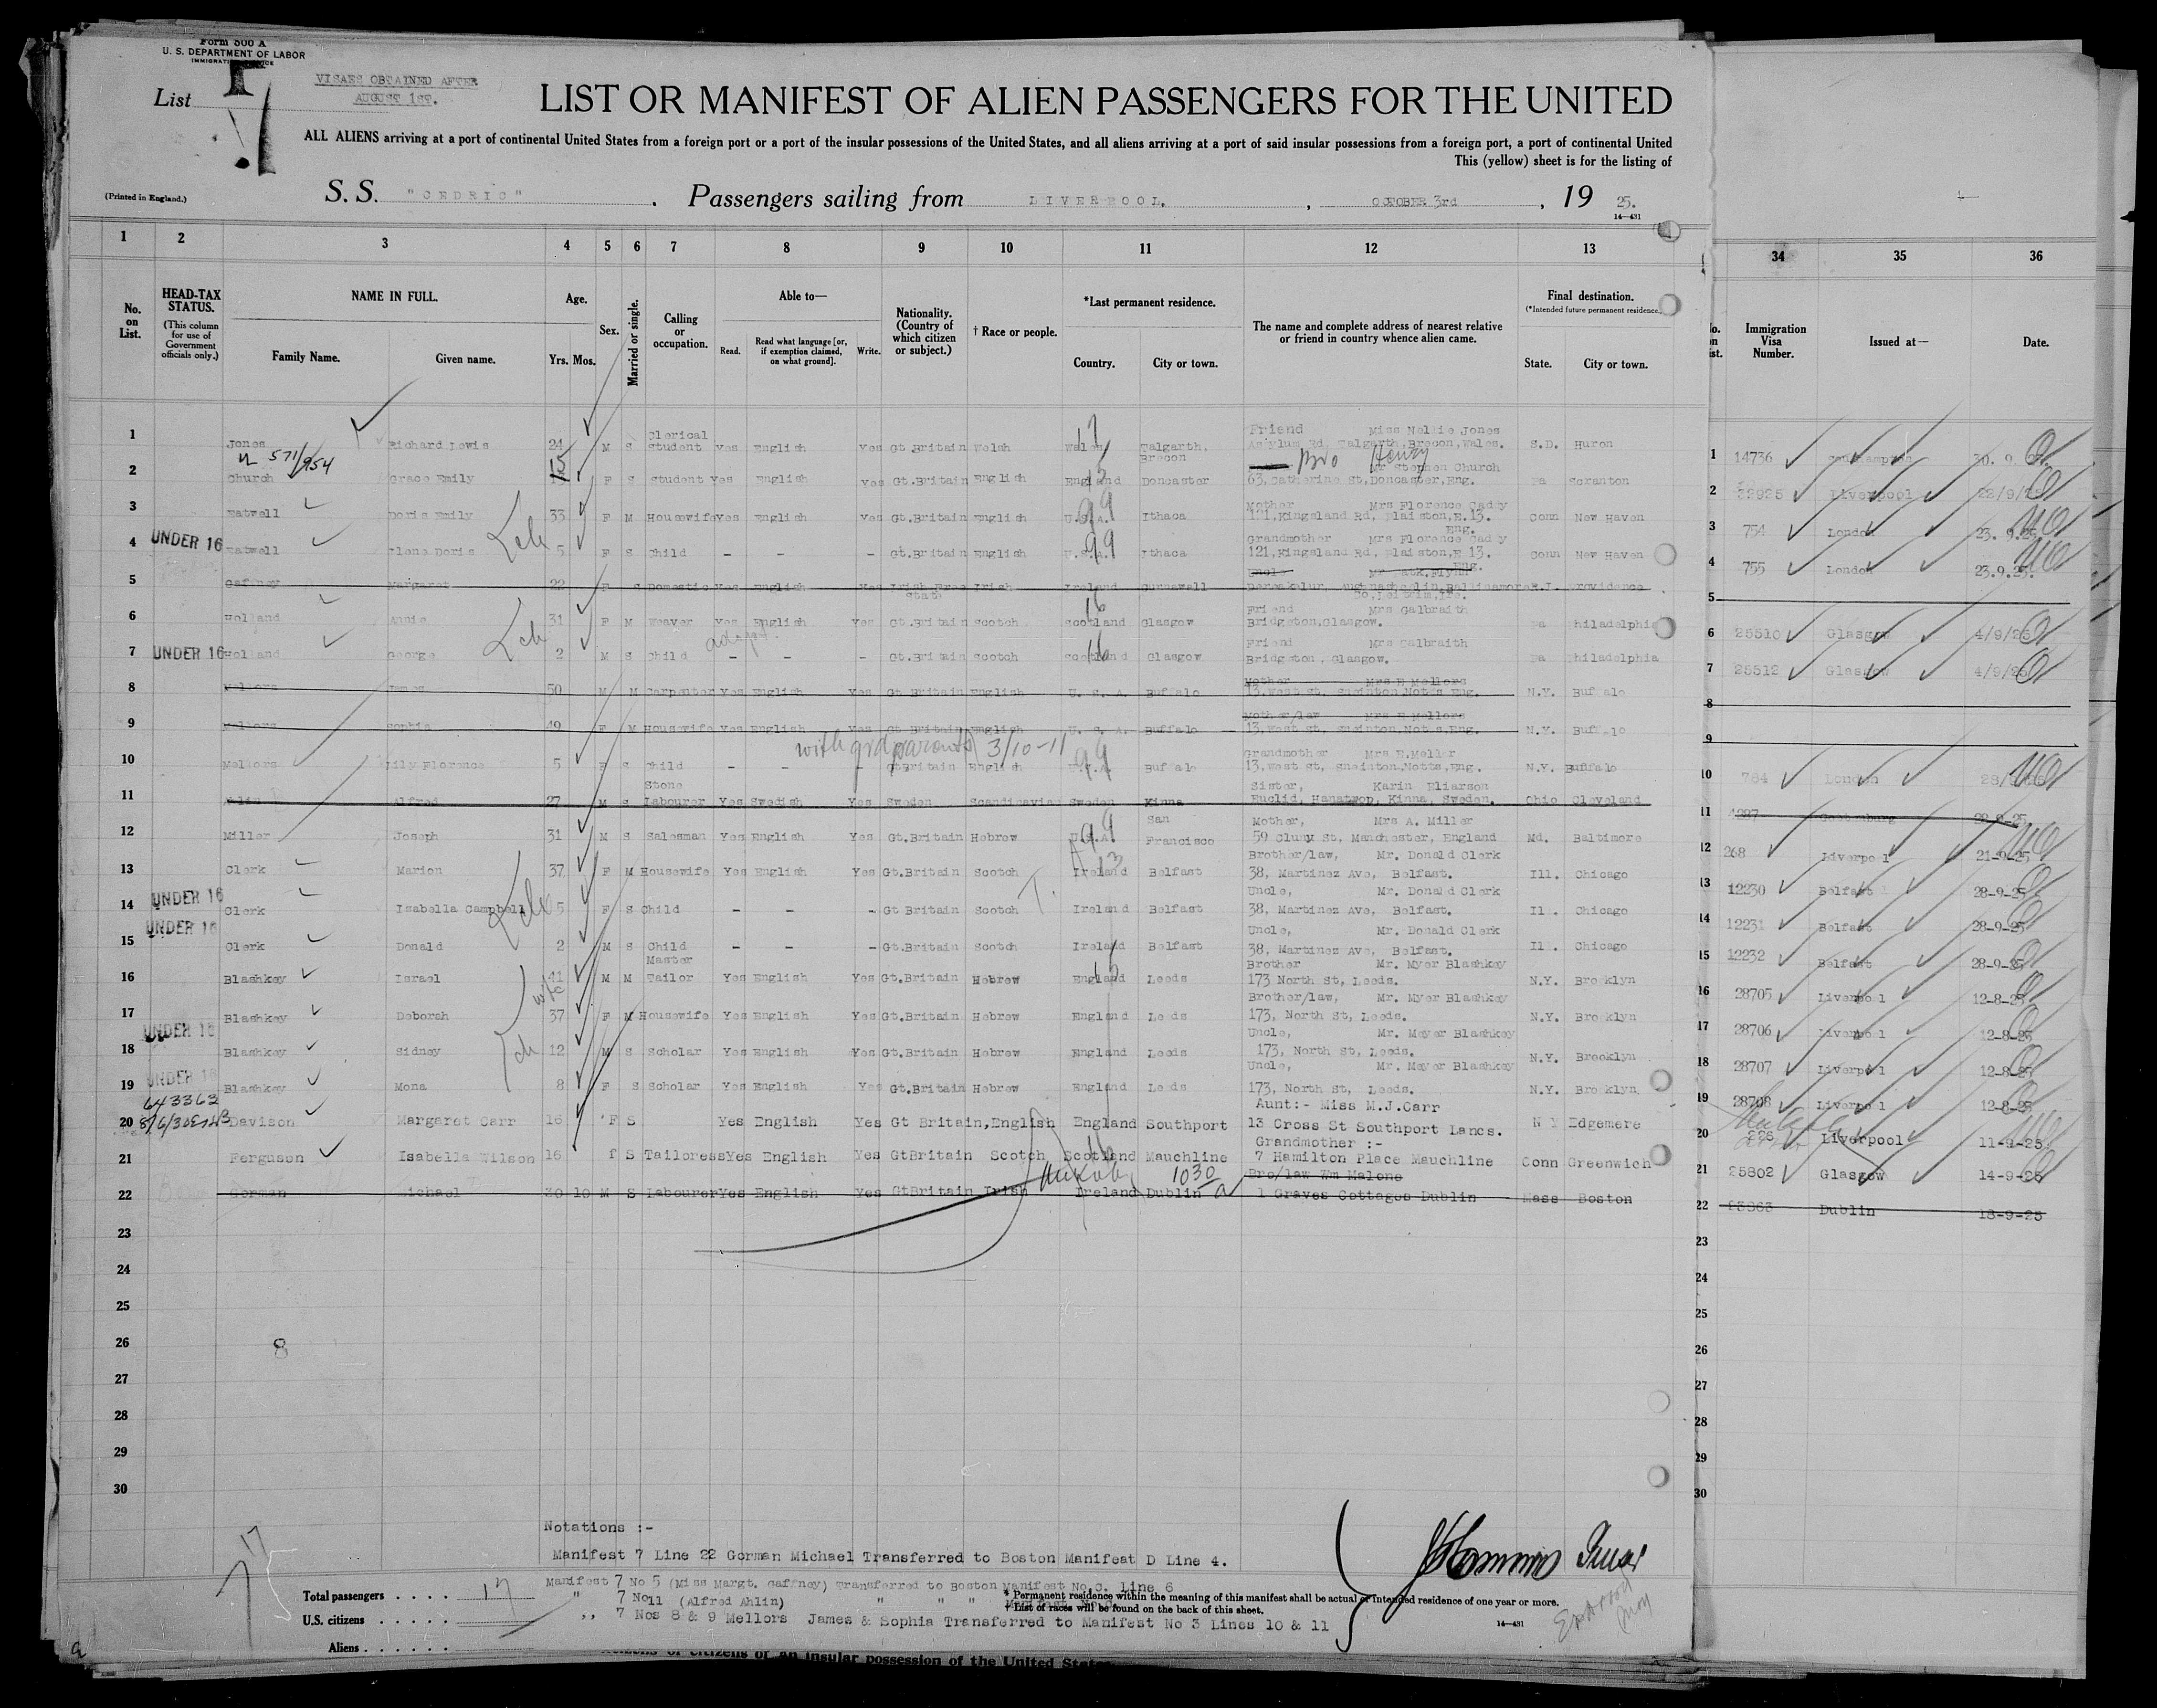 Form 500 A
U. S. DEPARTMENT OF LABOR
VISAES OBTAINED AFTER
AUGUST 1ST.
List
LIST OR MANIFEST OF ALIEN PASSENGERS FOR THE UNITED
ALL ALIENS arriving at a port of continental United States from a foreign port or a port of the insular possessions of the United States, and all aliens arriving at a port of said insular possessions from a foreign port, a port of continental United
This (yellow) sheet is for the listing of
(Printed in England.) S. S. "CEDRIC" . Passengers sailing from LIVERPOOL. , OCTOBER 3rd , 19 25.
14—431
1 2 3 4 5 6 7 8 9 10 11 12 13 34 35 36
No. on List. HEAD-TAX STATUS. (This column for use of Government officials only.) NAME IN FULL. Family Name. Given name. Age. Yrs. Mos. Sex. Married or single. Calling or occupation. Able to— Read. Read what language [or, if exemption claimed, on what ground]. Write. Nationality. (Country of which citizen or subject.) † Race or people. *Last permanent residence. Country. City or town. The name and complete address of nearest relative or friend in country whence alien came. Final destination. (*Intended future permanent residence.) State. City or town. Immigration Visa Number. Issued at— Date.
1 Jones Richard Lewis 24 M S Clerical student Yes English Yes Gt.Britain Welsh Wales Talgarth, Brecon Friend Miss Nellie Jones Asylum Rd, Talgarth, Brecon, Wales. S.D. Huron 1 14736
571/954
2 Church Grace Emily F S Student Yes English Yes Gt.Britain English England Doncaster Bro Henry Mr Stephen Church 63, Catherine St, Doncaster, Eng. Pa Scranton 2 Liverpool
3 Eatwell Doris Emily 33 F M Housewife Yes English Yes Gt.Britain English U.S.A. Ithaca Mother Mrs Florence Cady 121, Kingsland Rd, Plaistow, E.13. Eng. Conn New Haven 3 754 London 23.9.25
UNDER 16
4 Eatwell Ilene Doris 5 F S Child - - - Gt.Britain English U.S.A. Ithaca Grandmother Mrs Florence Cady 121, Kingsland Rd, Plaistow, E 13. Eng. Conn New Haven 4 755 London 23.9.25.
5 Gaffney Margaret 22 F S Domestic Yes English Yes Irish Free State Irish Ireland R.I. Providence 5
6 Holland Annie 31 F M Weaver Yes English Yes Gt.Britain Scotch Scotland Glasgow Friend Mrs Galbraith Bridgeton, Glasgow. Pa Philadelphia 6 25510 Glasgow 4/9/25
7 UNDER 16 Holland George 2 M S Child - - - Gt.Britain Scotch Scotland Glasgow Friend Mrs Galbraith Bridgeton, Glasgow. Pa Philadelphia 7 25512 Glasgow 4/9/25
8 Mellors James 50 M M Carpenter Yes English Yes Gt Britain English U. S. A. Buffalo Mother Mrs E Mellors 13, West St, Sneinton Notts Eng. N.Y. Buffalo 8
9 Mellors Sophia 49 F M Housewife Yes English Yes Gt.Britain English U. S. A. Buffalo Mother/law Mrs E Mellors 13, West St, Sneinton, Notts, Eng. N.Y. Buffalo 9
with grdparents 3/10-11
10 Mellors Lily Florence 5 F S Child - - - GtBritain English U.S.A Buffalo Grandmother Mrs E. Mellor 13, West St, Sneinton Notts, Eng. N.Y. Buffalo 10 784 London
11 Alfred 27 M S Stone Labourer Yes Swedish Yes Sweden Scandinavian Sweden Kinna Sister, Karin Eliarson Kinna, Sweden. Ohio Cleveland 11
12 Miller Joseph 31 M S Salesman Yes English Yes Gt.Britain Hebrew U.S.A. San Francisco Mother, Mrs A. Miller 59 Cluny St, Manchester, England Md. Baltimore 12 268 Liverpool 21-9-25
13 Clerk Marion 37 F M Housewife Yes English Yes Gt.Britain Scotch Ireland Belfast Brother/law, Mr. Donald Clerk 38, Martinez Ave, Belfast. Ill. Chicago 13 12230 Belfast 28-9-25
UNDER 16
14 Clerk Isabella Campbell 5 F S Child - - - Gt Britain Scotch Ireland Belfast Uncle, Mr. Donald Clerk 38, Martinez Ave, Belfast. Ill. Chicago 14 12231 Belfast 28-9-25
UNDER 16
15 Clerk Donald 2 M S Child - - - Gt.Britain Scotch Ireland Belfast Uncle, Mr. Donald Clerk 38, Martinez Ave, Belfast. Ill. Chicago 15 12232 Belfast 28-9-25
16 Blashkey Israel 41 M M Master Tailor Yes English Yes Gt.Britain Hebrew England Leeds Brother Mr. Myer Blashkey 173 North St, Leeds. N.Y. Brooklyn 16 28705 Liverpool 12-8-25
17 Blashkey Deborah 37 F M Housewife Yes English Yes Gt.Britain Hebrew England Leeds Brother/law, Mr. Myer Blashkey 173, North St, Leeds. N.Y. Brooklyn 17 28706 Liverpool 12-8-25
UNDER 16
18 Blashkey Sidney 12 M S Scholar Yes English Yes Gt.Britain Hebrew England Leeds Uncle, Mr. Meyer Blashkey 173, North St, Leeds. N.Y. Brooklyn 18 28707 Liverpool 12-8-25
UNDER 16
19 Blashkey Mona 8 F S Scholar Yes English Yes Gt.Britain Hebrew England Leeds Uncle, Mr. Meyer Blashkey 173, North St, Leeds. N.Y. Brooklyn. 19 28708 Liverpool 12-8-25
643363
20 Davison Margaret Carr 16 F S Yes English Yes Gt Britain, English England Southport Aunt:- Miss M.J.Carr 13 Cross St Southport Lancs. N Y Edgemere 20 Liverpool 11-9-25
21 Ferguson Isabella Wilson 16 f S Tailoress Yes English Yes GtBritain Scotch Scotland Mauchline Grandmother :- 7 Hamilton Place Mauchline Conn Greenwich 21 25802 Glasgow 14-9-25
1030
22 Gorman Michael 30 10 M S Labourer Yes English Yes GtBritain Irish Ireland Dublin Bro/law Wm Malone 1 Graves Cottages Dublin Mass Boston 22 Dublin 18-9-25
23 23
24 24
25 25
26 8 26
27 27
28 28
29 29
30 30
Notations :-
Manifest 7 Line 22 Gorman Michael Transferred to Boston Manifest D Line 4.
Manifest 7 No 5 (Miss Margt. Gaffney) Transferred to Boston Manifest No.C. Line 6
" 7 No 11 (Alfred Ahlin) " " "
,, 7 Nos 8 & 9 Mellors James & Sophia Transferred to Manifest No 3 Lines 10 & 11
17
Total passengers . . . . 17
U.S. citizens . . . . .
Aliens . . . . . .
* Permanent residence within the meaning of this manifest shall be actual or intended residence of one year or more.
† List of races will be found on the back of this sheet.
14—431
citizens of an insular possession of the United States